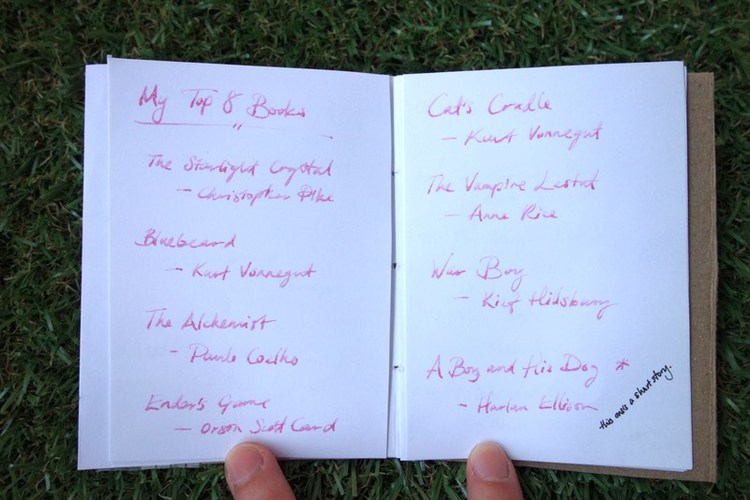 My Top 8 Books
The Starlight Crystal
- Christopher Pike
Bluebeard
- Kurt Vonnegut
The Alchemist
- Paulo Coelho
Ender's Game
- Orson Scott Card
Cat's Cradle
- Kurt Vonnegut
The Vampire Lestat
- Anne Rice
War Boy
- Kief Hillsbury
A Boy and His Dog *
- Harlan Ellison
this one's a short story.